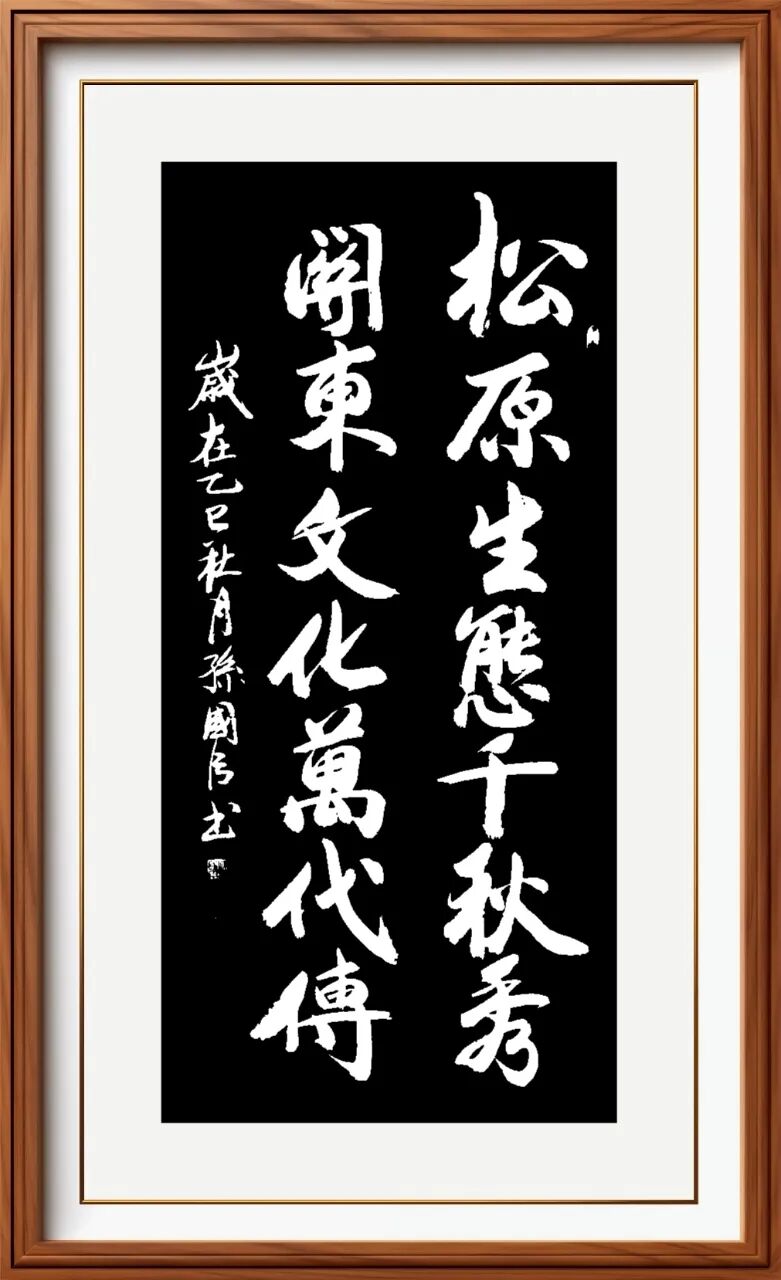 松原生態千秋秀
關東文化萬代傳
歲在乙巳秋月孫國防书